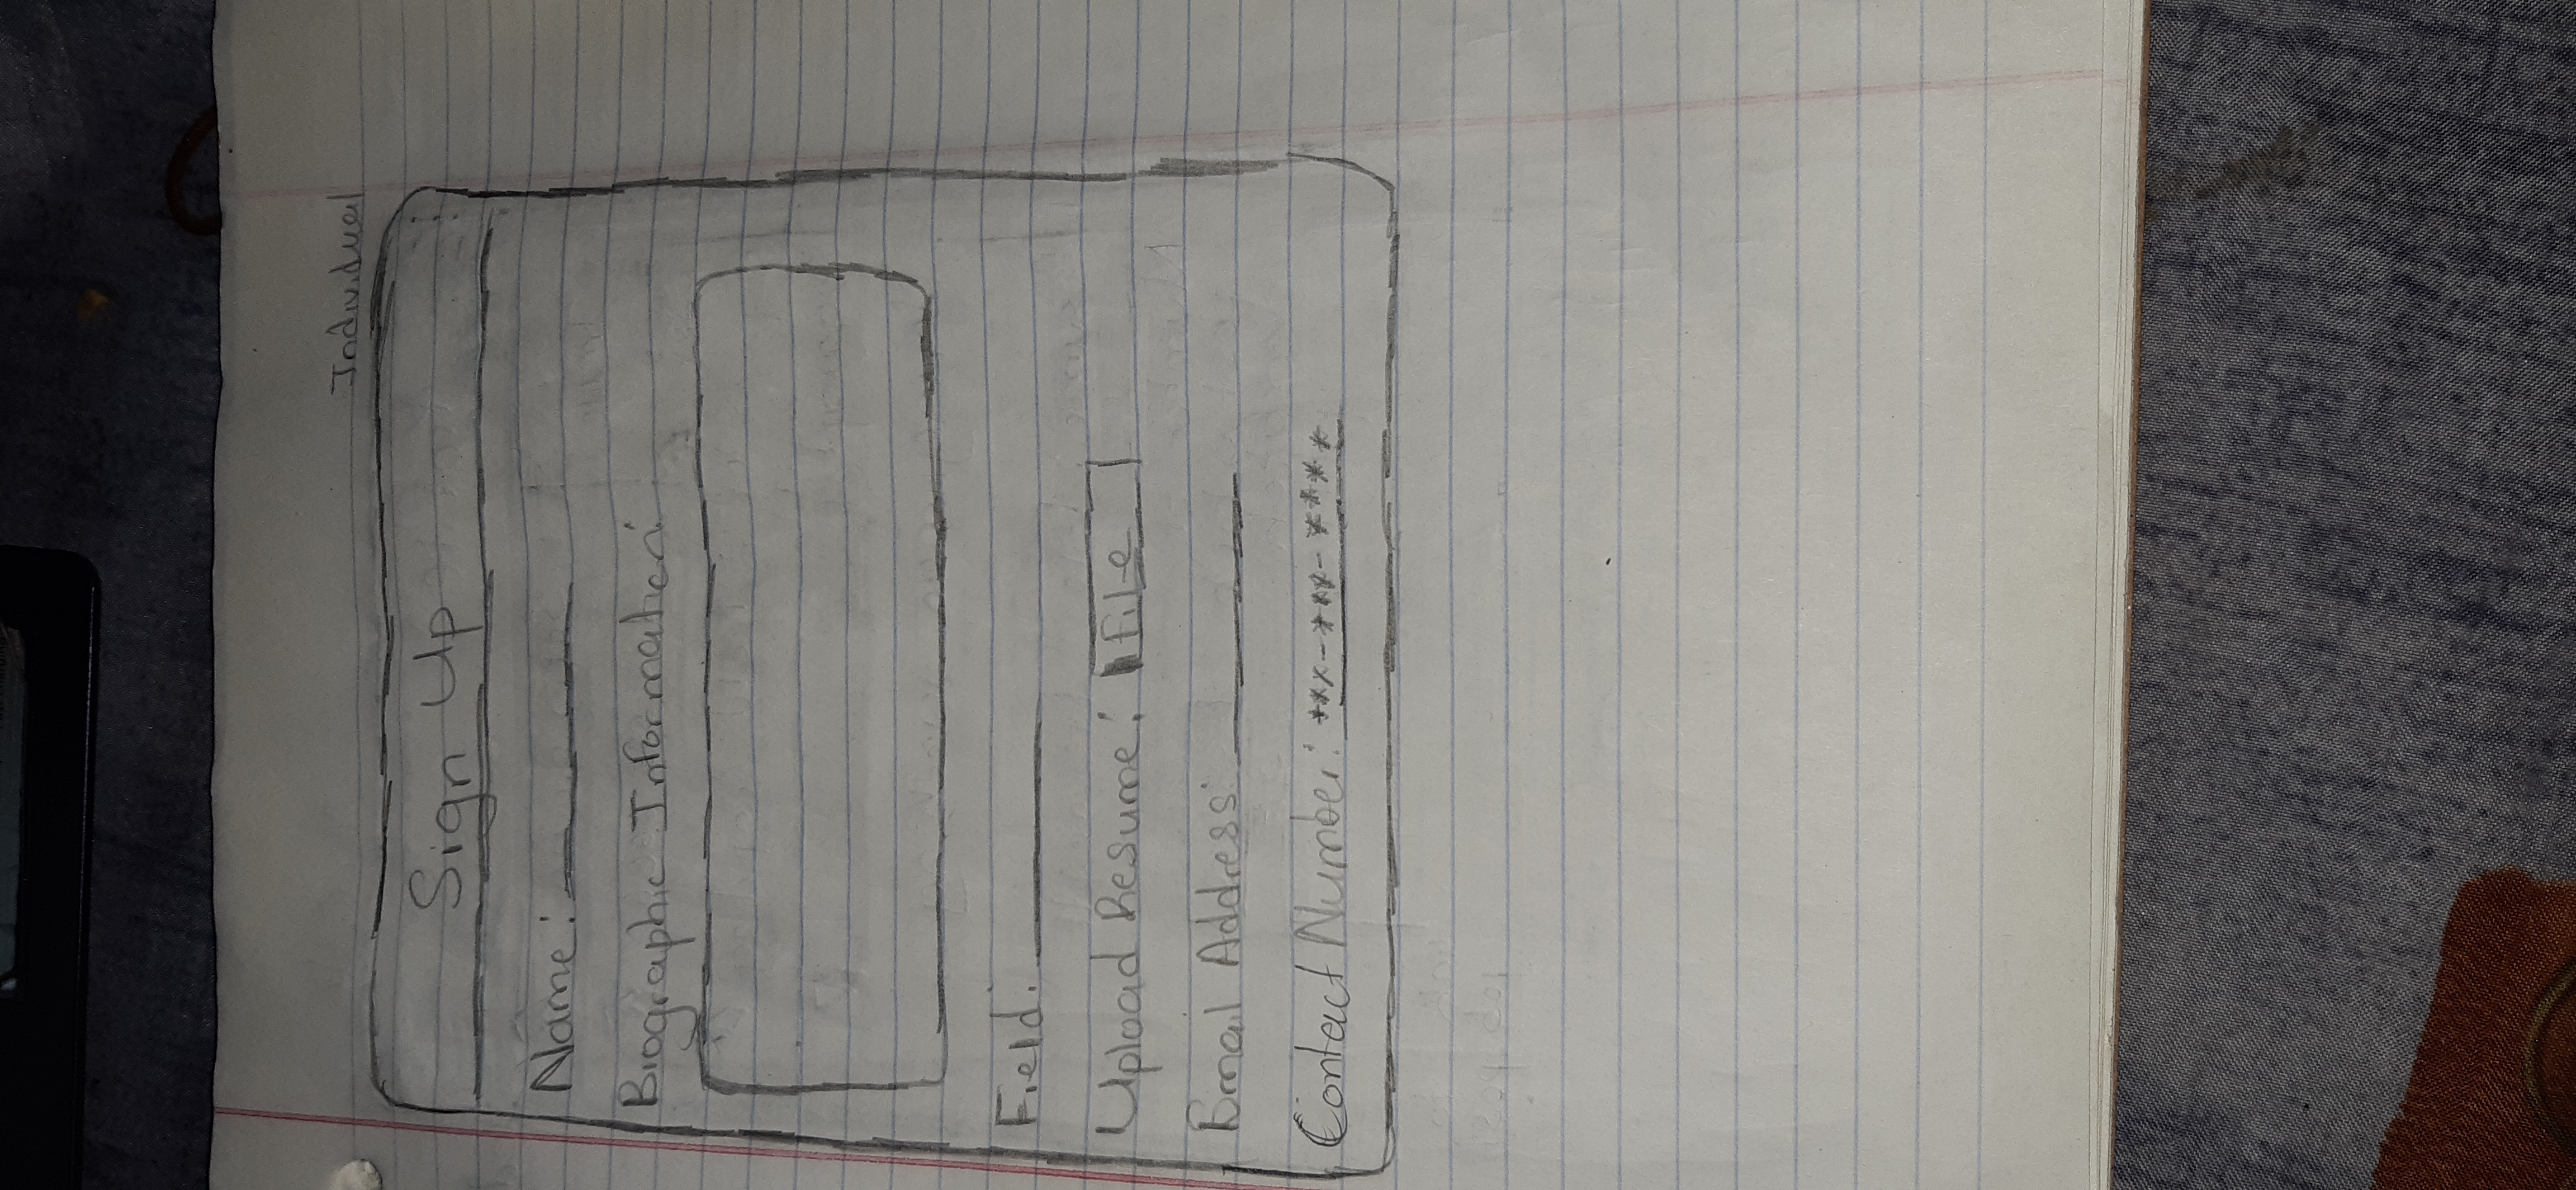 Individual
Sign Up
Name:
Biographic Information:
Field:
Upload Resume: File
Email Address:
Contact Number: ***-***-****